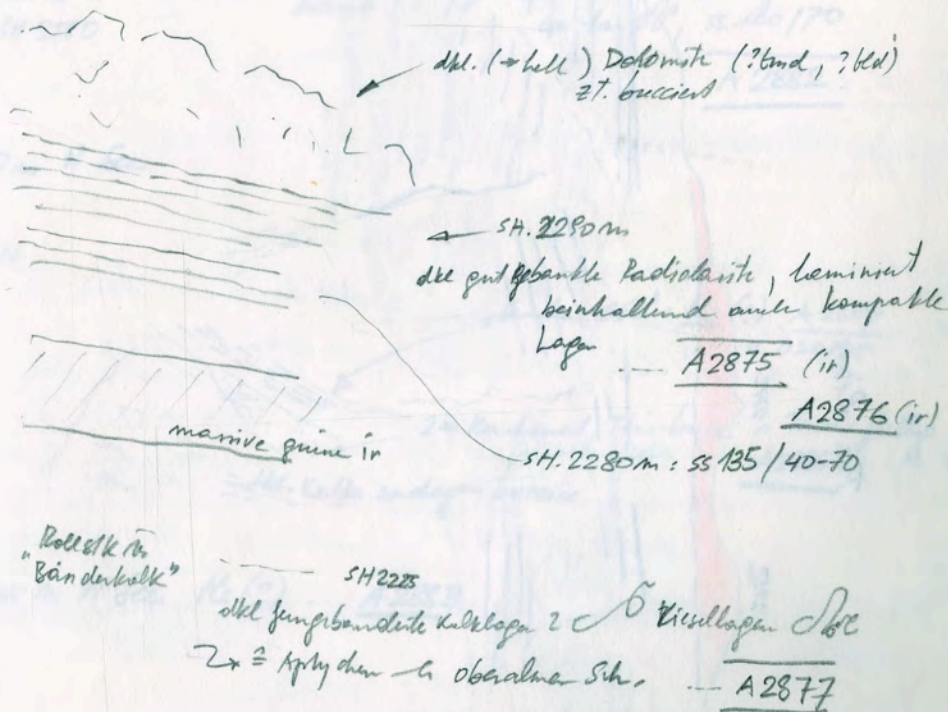 dkl. (→ hell) Dolomite (?tmd, ?tld)
zT. brecciert
SH. 2290m
dkl gut gebankte Radiolarite, laminiert
beinhaltend auch kompakte
Lagen .... A2875 (ir)
A2876 (ir)
massive grüne ir
SH. 2280m : ss 135/40-70
Bänderkalk"
SH 2225
dkl feingebänderte Kalklagen Kiesellagen
≙ Aptychen oberalmer Sch. --- A2877